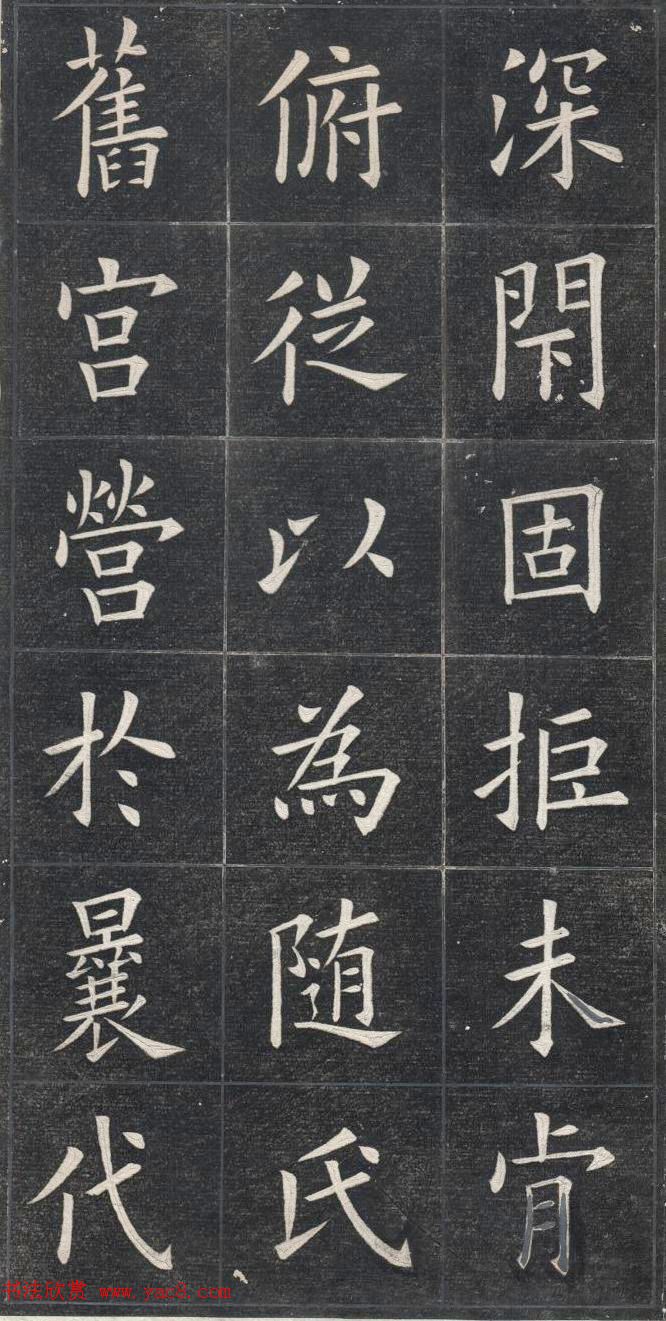 深閇固拒未肯
俯従以為随氏
舊宮營於曩代
书法欣赏 www.yac8.com